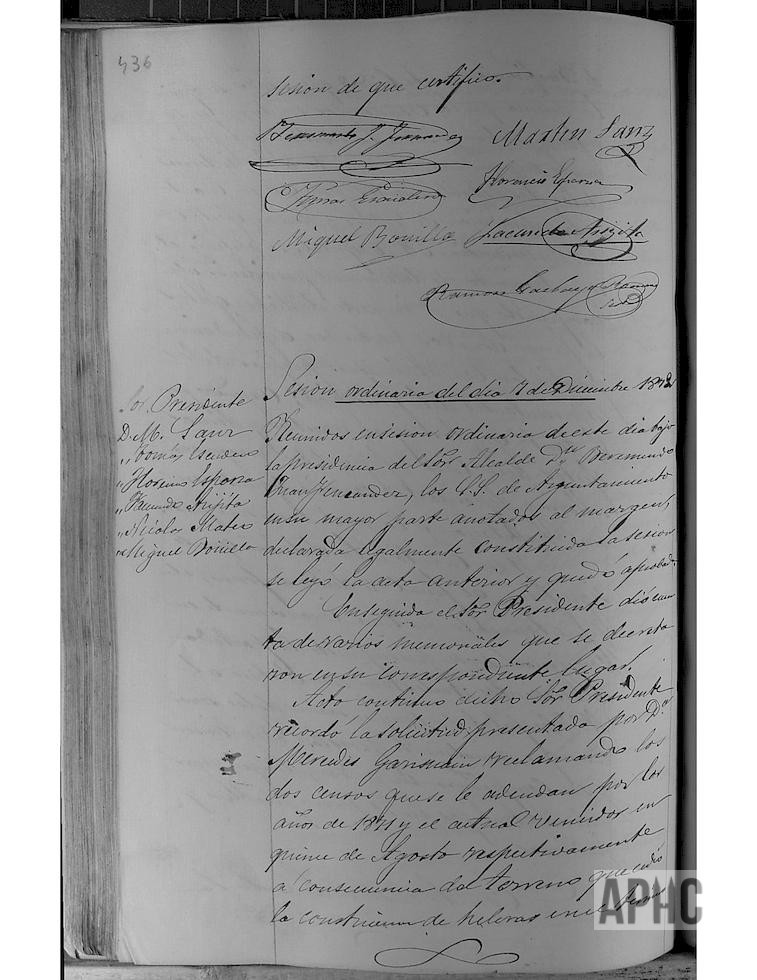 436
sesion de que certifico.
Beremundo J. Fernandez
Martin Sanz
Tomas Escudero
Florencio Esparza
Miguel Bonilla
Facundo Arizita
Ramon
Sesion ordinaria del dia 7 de Diciembre 1872
Sor. Presidente
D. M. Sanz
" Tomás Escudero
" Florencio Esparza
" Facundo Arizita
" Nicolas Mateo
" Miguel Bonilla
Reunidos en sesion ordinaria de este dia bajo
la presidencia del Sor. Alcalde Dn. Beremundo
Juan Fernandez, los S.S. de Ayuntamiento
en su mayor parte anotados al margen,
declarada legalmente constituida la sesion
se leyó la acta anterior y quedó aprobada.
Enseguida el Sor. Presidente dió cuen
ta de varios memoriales que se decreta
ron en su correspondiente lugar.
Acto continuo dicho Sor. Presidente
recordó la solicitud presentada por Da.
Mercedes reclamando los
dos censos que se le adeudan por los
años de 1871 y el actual vencidos en
quince de Agosto respectivamente
a consecuencia del terreno que cedió
la construccion de heleras en el
APHC